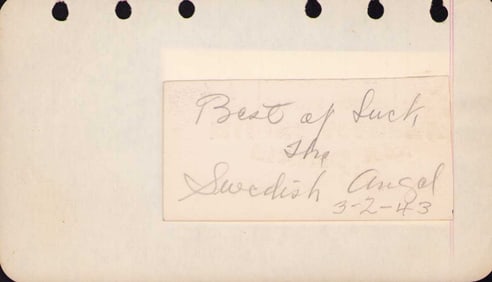 Best of Luck
The
Swedish Angel
3-2-43